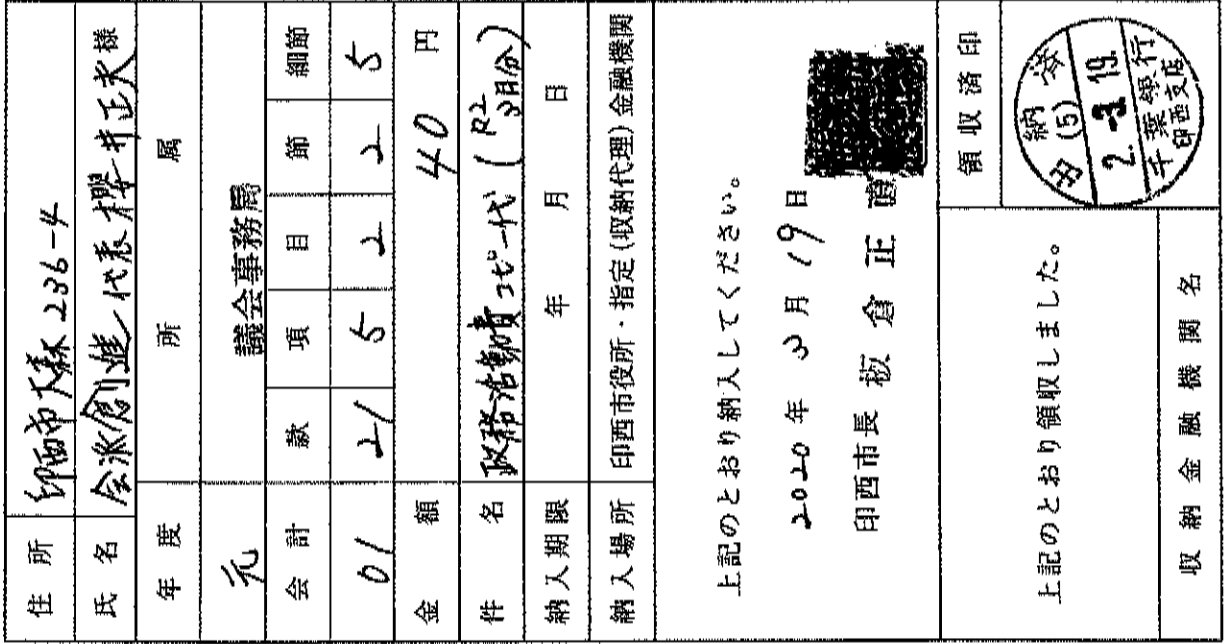 住所 印西市大森 236-4
氏名 会派創進 代表 櫻井正夫 様
年度 所属
元 議会事務局
会計 款 項 目 節 細節
01 21 5 2 2 5
金額 40 円
件名 政務活動費コピー代 (R2 3月分)
納入期限 年 月 日
納入場所 印西市役所・指定(収納代理)金融機関
上記のとおり納入してください。
2020年 3月 19日
印西市長 板倉正直
領収済印
納済
(5)
2.-3.19.
千葉銀行
印西支店
上記のとおり領収しました。
収納金融機関名